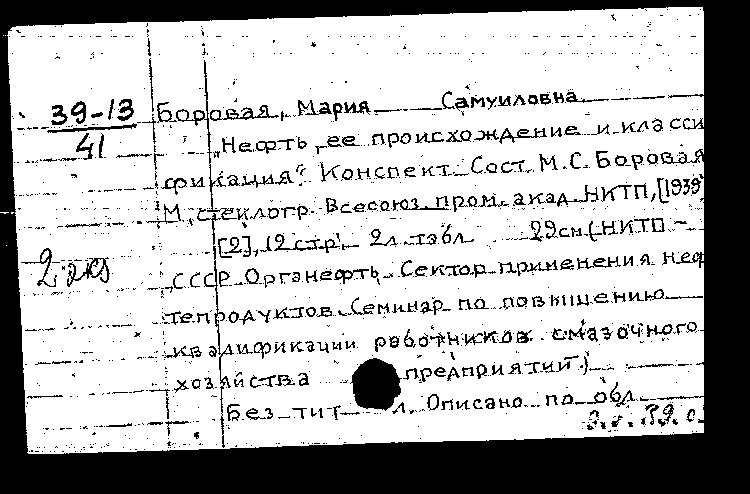 39-13
41
Боровая, Мария Самуиловна
„Нефть, ее происхождение и класси
фикация". Конспект. Сост. М.С. Боровая
М, стеклогр. Всесоюз. пром. акад. НИТП, [1939]
[2], 12 стр. 2 л. табл. 29 см (НИТП –
2 экз
СССР. Органефть. Сектор применения неф
тепродуктов. Семинар по повышению
квалификации работников смазочного
хозяйства предприятий)
Без тит. л. Описано по обл.